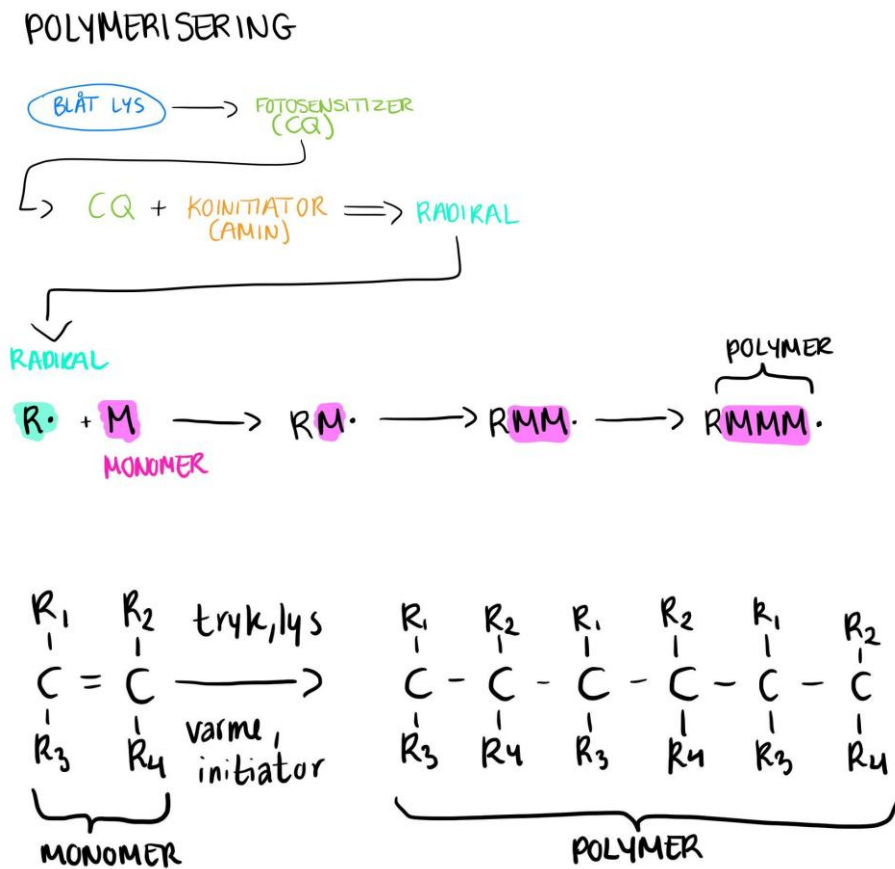 POLYMERISERING
BLÅT LYS → FOTOSENSITIZER
(CQ)
CQ + KOINITIATOR ⇒ RADIKAL
(AMIN)
RADIKAL
POLYMER
R· + M → RM· → RMM· → RMMM·
MONOMER
R₁ R₂ tryk, lys R₁ R₂ R₁ R₂ R₁ R₂
C = C → C - C - C - C - C - C
R₃ R₄ varme, R₃ R₄ R₃ R₄ R₃ R₄
initiator
MONOMER POLYMER